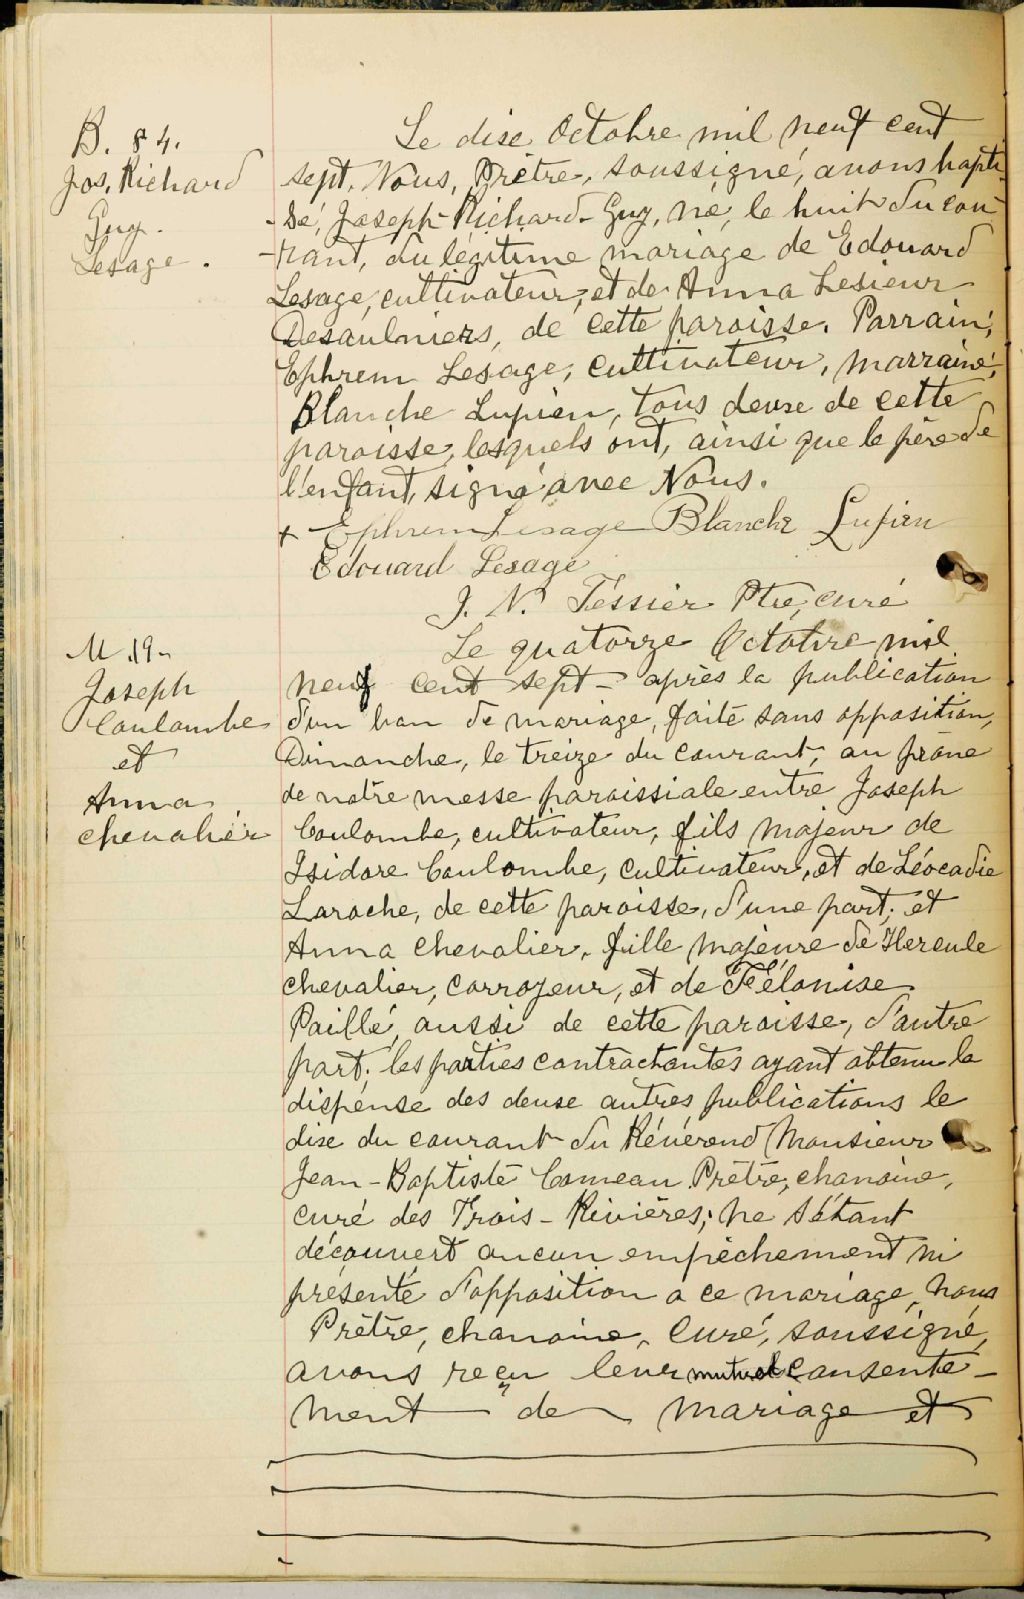 B. 84.
Jos. Richard
Guy.
Lesage.
Le dix Octobre mil neuf cent
sept, Nous, Prêtre, soussigné, avons bapti-
-sé, Joseph-Richard-Guy, né, le huit du cou-
-rant, du légitime mariage de Edouard
Lesage, cultivateur, et de Anna Lesieur
Desaulniers, de cette paroisse. Parrain,
Ephrem Lesage, cultivateur, marraine,
Blanche Lupien, tous deux de cette
paroisse, lesquels ont, ainsi que le père de
l'enfant, signé avec Nous.
+ Ephrem Lesage Blanche Lupien
Edouard Lesage
J. N. Téssier Ptre, curé
M. 19-
Joseph
Coulombe
et
Anna
Chevalier
Le quatorze Octobre mil
neuf cent sept - après la publication
d'un ban de mariage, faite sans opposition,
Dimanche, le treize du courant, au prône
de notre messe paroissiale entre Joseph
Coulombe, cultivateur, fils majeur de
Isidore Coulombe, cultivateur, et de Léocadie
Laroche, de cette paroisse, d'une part; et
Anna Chevalier, fille majeure de Hercule
Chevalier, corroyeur, et de Félonise
Paillé, aussi de cette paroisse, d'autre
part; les parties contractantes ayant obtenu la
dispense des deux autres publications le
dix du courant du Révérend Monsieur
Jean-Baptiste Comeau Prêtre, chanoine,
curé des Trois-Rivières; ne s'étant
découvert aucun empêchement ni
présenté d'opposition a ce mariage, nous
Prêtre, chanoine, Curé, soussigné,
avons reçu leur mutuel consente-
ment de mariage et